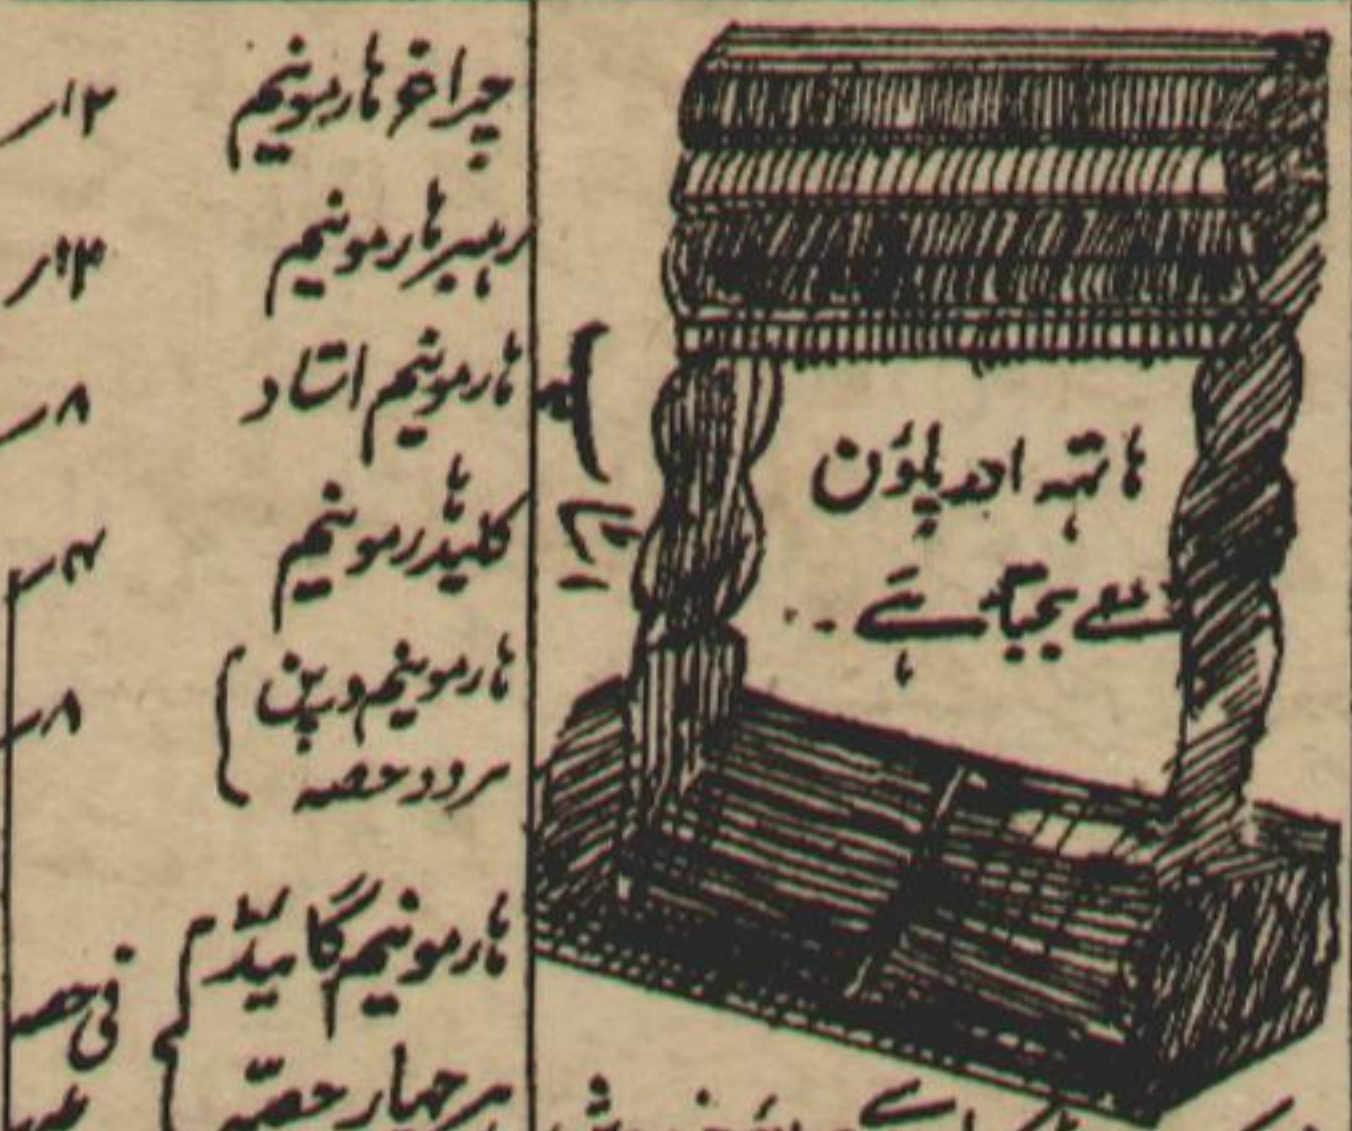 ہاتھہ اور پاؤن
سے بجتا ہے
چراغ ہارمونیم ۱۲؍
رہبر ہارمونیم
ہارمونیم استاد ۸؍
کلید ہارمونیم ۴؍
ہارمونیم درپن ۸؍
ہردو حصہ
ہارمونیم گائیڈ فی حصہ
ہر چہار حصہ